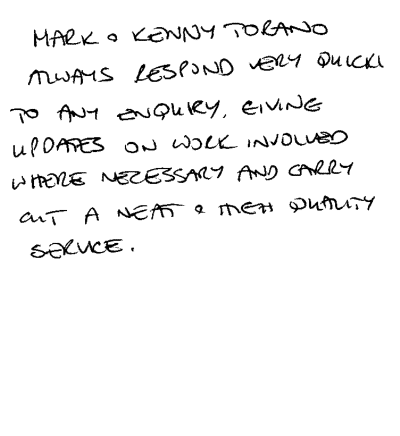 MARK & KENNY TORANO
ALWAYS RESPOND VERY QUICKL
TO ANY ENQUIRY, GIVING
UPDATES ON WORK INVOLVED
WHERE NECESSARY AND CARRY
OUT A NEAT & HIGH QUALITY
SERVICE.